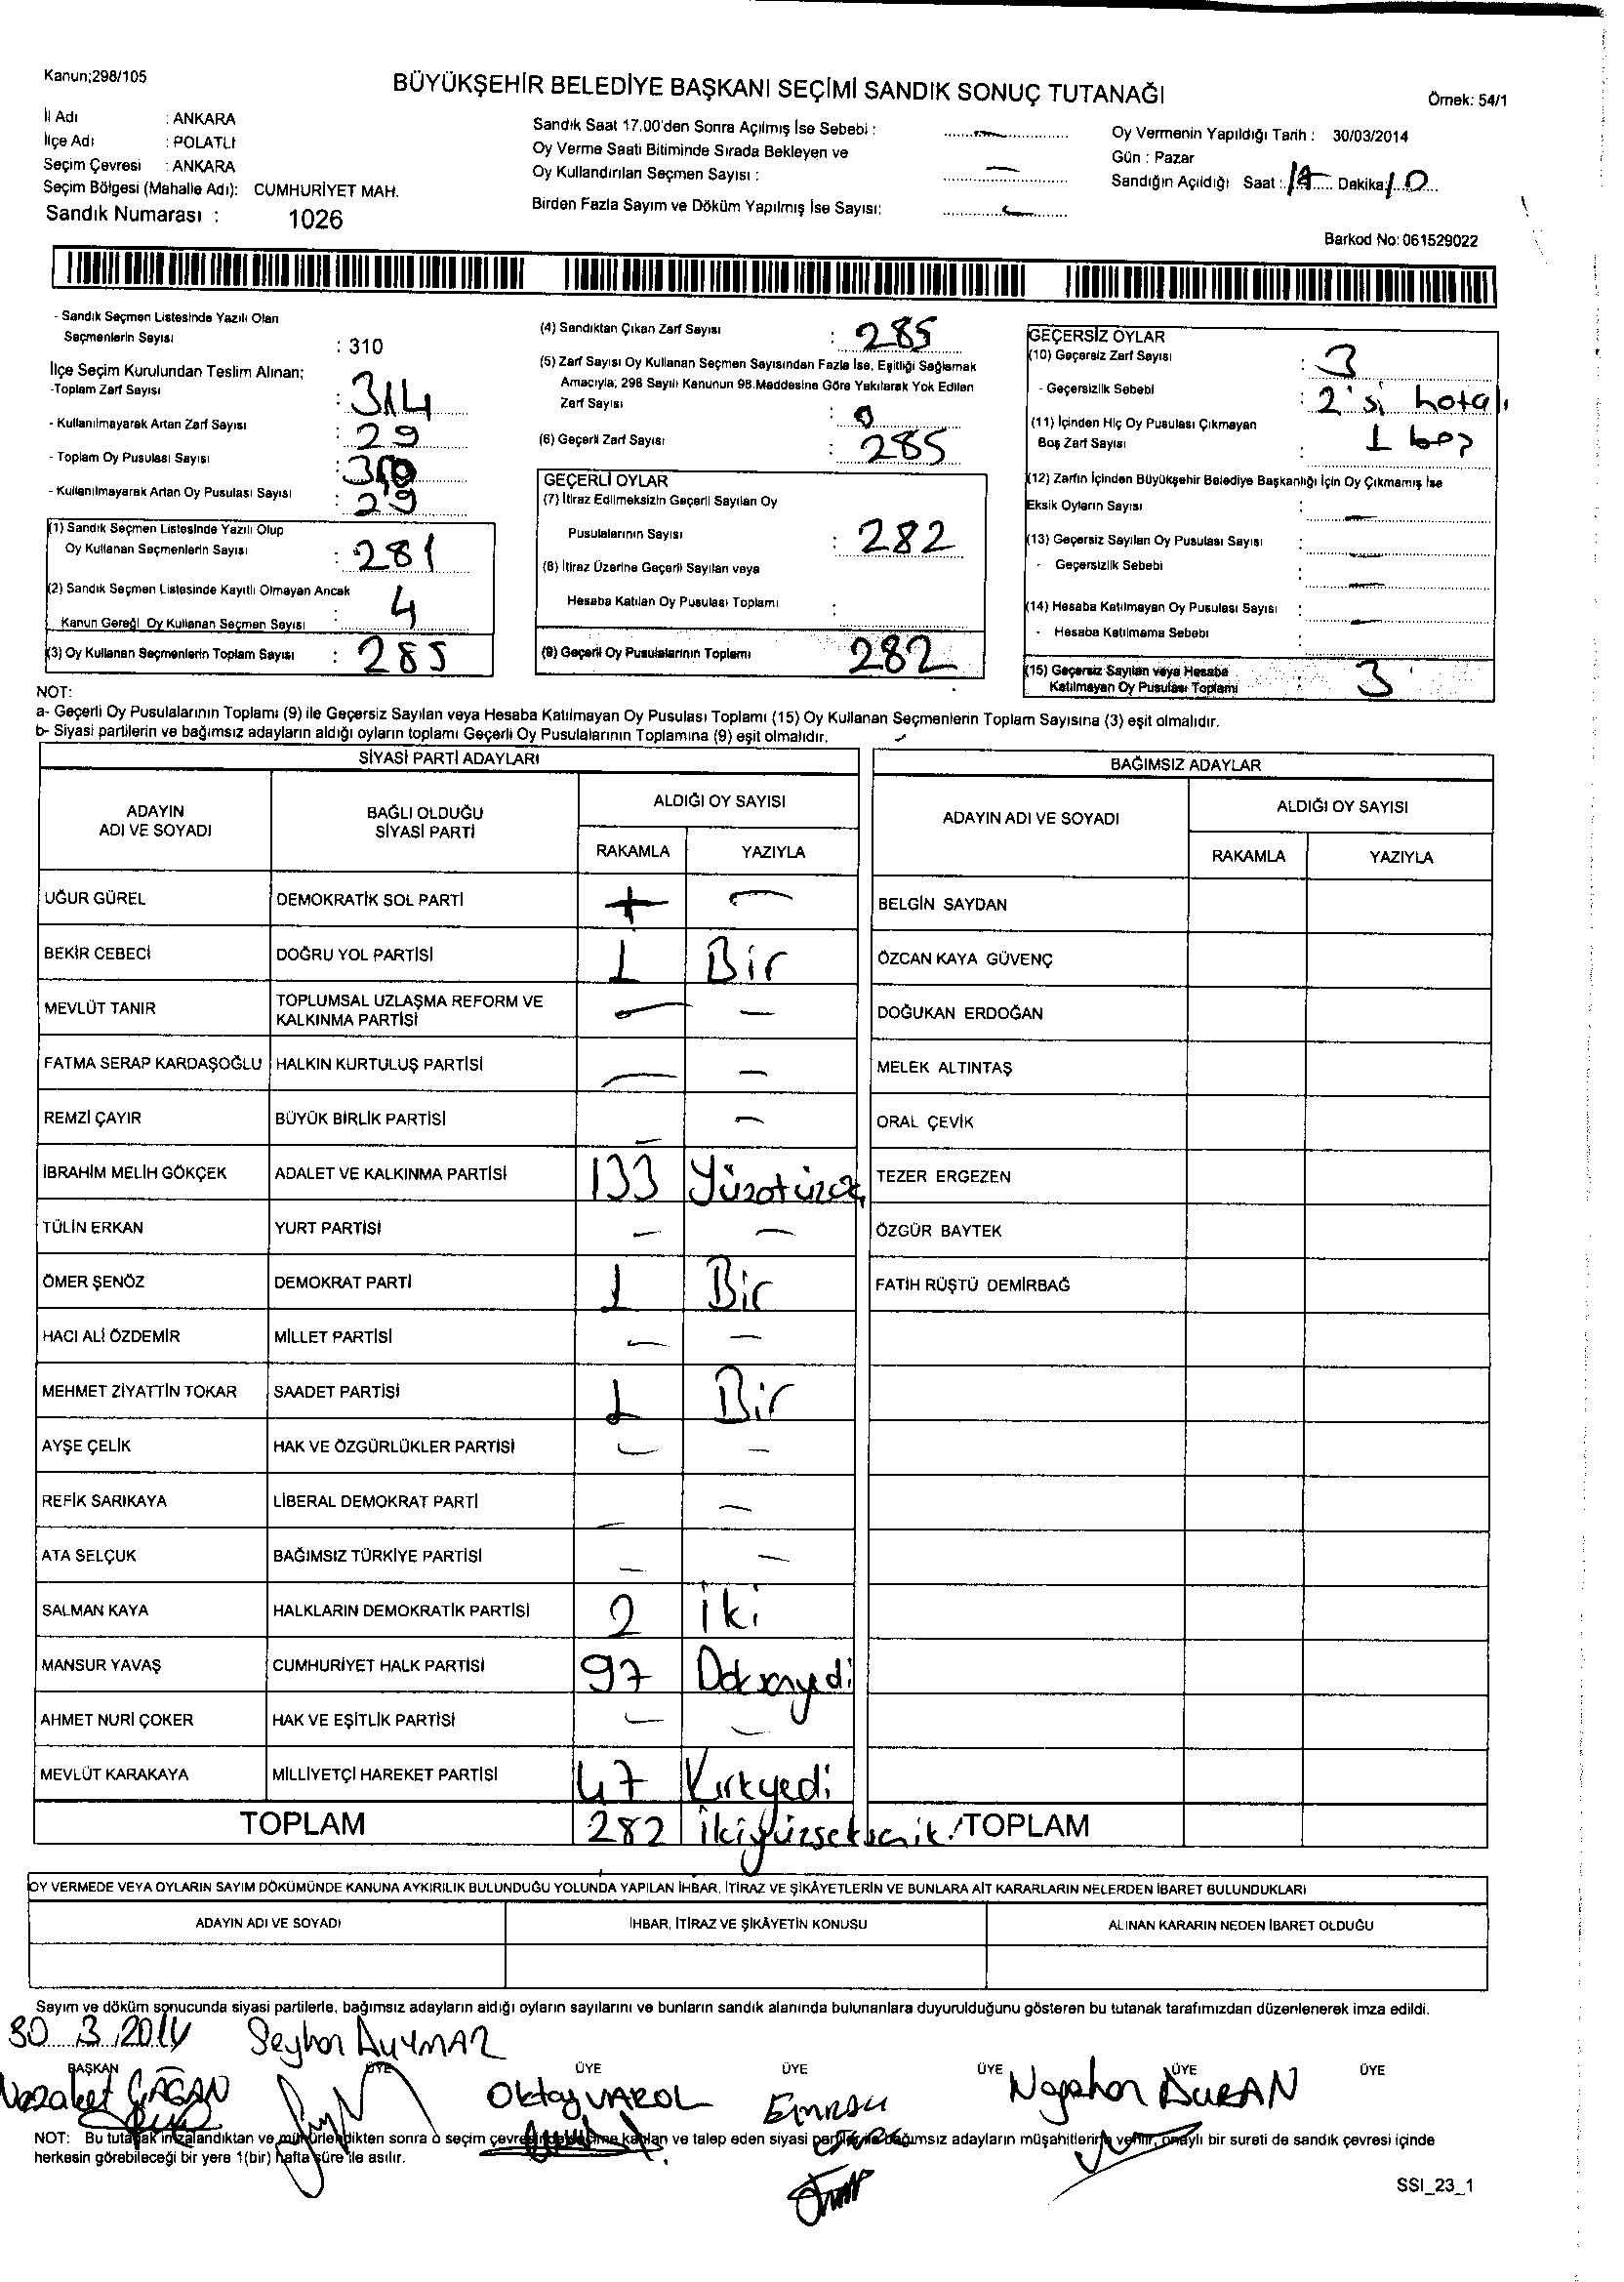 Kanun;298/105
BÜYÜKŞEHİR BELEDİYE BAŞKANI SEÇİMİ SANDIK SONUÇ TUTANAĞI
Örnek: 54/1
İl Adı : ANKARA
İlçe Adı : POLATLI
Seçim Çevresi : ANKARA
Seçim Bölgesi (Mahalle Adı): CUMHURİYET MAH.
Sandık Numarası : 1026
Sandık Saat 17.00'den Sonra Açılmış İse Sebebi : —
Oy Verme Saati Bitiminde Sırada Bekleyen ve
Oy Kullandırılan Seçmen Sayısı : —
Birden Fazla Sayım ve Döküm Yapılmış İse Sayısı: —
Oy Vermenin Yapıldığı Tarih : 30/03/2014
Gün : Pazar
Sandığın Açıldığı Saat : Dakika: 10
Barkod No: 061529022
- Sandık Seçmen Listesinde Yazılı Olan
Seçmenlerin Sayısı : 310
İlçe Seçim Kurulundan Teslim Alınan;
-Toplam Zarf Sayısı : 314
- Kullanılmayarak Artan Zarf Sayısı : 29
- Toplam Oy Pusulası Sayısı :
- Kullanılmayarak Artan Oy Pusulası Sayısı : 29
(1) Sandık Seçmen Listesinde Yazılı Olup
Oy Kullanan Seçmenlerin Sayısı : 281
(2) Sandık Seçmen Listesinde Kayıtlı Olmayan Ancak
Kanun Gereği Oy Kullanan Seçmen Sayısı : 4
(3) Oy Kullanan Seçmenlerin Toplam Sayısı : 285
(4) Sandıktan Çıkan Zarf Sayısı : 285
(5) Zarf Sayısı Oy Kullanan Seçmen Sayısından Fazla İse, Eşitliği Sağlamak
Amacıyla; 298 Sayılı Kanunun 98.Maddesine Göre Yakılarak Yok Edilen
Zarf Sayısı : 0
(6) Geçerli Zarf Sayısı : 285
GEÇERLİ OYLAR
(7) İtiraz Edilmeksizin Geçerli Sayılan Oy
Pusulalarının Sayısı : 282
(8) İtiraz Üzerine Geçerli Sayılan veya
Hesaba Katılan Oy Pusulası Toplamı :
(9) Geçerli Oy Pusulalarının Toplamı 282
GEÇERSİZ OYLAR
(10) Geçersiz Zarf Sayısı : 3
- Geçersizlik Sebebi : 2'si hatalı
(11) İçinden Hiç Oy Pusulası Çıkmayan
Boş Zarf Sayısı : 1 boş
(12) Zarfın İçinden Büyükşehir Belediye Başkanlığı İçin Oy Çıkmamış İse
Eksik Oyların Sayısı : —
(13) Geçersiz Sayılan Oy Pusulası Sayısı : —
- Geçersizlik Sebebi : —
(14) Hesaba Katılmayan Oy Pusulası Sayısı : —
- Hesaba Katılmama Sebebi :
(15) Geçersiz Sayılan veya Hesaba
Katılmayan Oy Pusulası Toplamı : 3
NOT:
a- Geçerli Oy Pusulalarının Toplamı (9) ile Geçersiz Sayılan veya Hesaba Katılmayan Oy Pusulası Toplamı (15) Oy Kullanan Seçmenlerin Toplam Sayısına (3) eşit olmalıdır.
b- Siyasi partilerin ve bağımsız adayların aldığı oyların toplamı Geçerli Oy Pusulalarının Toplamına (9) eşit olmalıdır.
SİYASİ PARTİ ADAYLARI
ADAYIN ADI VE SOYADI
BAĞLI OLDUĞU SİYASİ PARTİ
ALDIĞI OY SAYISI
RAKAMLA YAZIYLA
UĞUR GÜREL DEMOKRATİK SOL PARTİ — —
BEKİR CEBECİ DOĞRU YOL PARTİSİ 1 Bir
MEVLÜT TANIR TOPLUMSAL UZLAŞMA REFORM VE KALKINMA PARTİSİ — —
FATMA SERAP KARDAŞOĞLU HALKIN KURTULUŞ PARTİSİ — —
REMZİ ÇAYIR BÜYÜK BİRLİK PARTİSİ — —
İBRAHİM MELİH GÖKÇEK ADALET VE KALKINMA PARTİSİ 133 Yüzotuzüç
TÜLİN ERKAN YURT PARTİSİ — —
ÖMER ŞENÖZ DEMOKRAT PARTİ 1 Bir
HACI ALİ ÖZDEMİR MİLLET PARTİSİ — —
MEHMET ZİYATTİN TOKAR SAADET PARTİSİ 1 Bir
AYŞE ÇELİK HAK VE ÖZGÜRLÜKLER PARTİSİ — —
REFİK SARIKAYA LİBERAL DEMOKRAT PARTİ — —
ATA SELÇUK BAĞIMSIZ TÜRKİYE PARTİSİ — —
SALMAN KAYA HALKLARIN DEMOKRATİK PARTİSİ 2 İki
MANSUR YAVAŞ CUMHURİYET HALK PARTİSİ 97 Doksanyedi
AHMET NURİ ÇOKER HAK VE EŞİTLİK PARTİSİ — —
MEVLÜT KARAKAYA MİLLİYETÇİ HAREKET PARTİSİ 47 Kırkyedi
TOPLAM 282 İkiyüzseksenik
BAĞIMSIZ ADAYLAR
ADAYIN ADI VE SOYADI
ALDIĞI OY SAYISI
RAKAMLA YAZIYLA
BELGİN SAYDAN
ÖZCAN KAYA GÜVENÇ
DOĞUKAN ERDOĞAN
MELEK ALTINTAŞ
ORAL ÇEVİK
TEZER ERGEZEN
ÖZGÜR BAYTEK
FATİH RÜŞTÜ DEMİRBAĞ
TOPLAM
OY VERMEDE VEYA OYLARIN SAYIM DÖKÜMÜNDE KANUNA AYKIRILIK BULUNDUĞU YOLUNDA YAPILAN İHBAR, İTİRAZ VE ŞİKÂYETLERİN VE BUNLARA AİT KARARLARIN NELERDEN İBARET BULUNDUKLARI
ADAYIN ADI VE SOYADI İHBAR, İTİRAZ VE ŞİKÂYETİN KONUSU ALINAN KARARIN NEDEN İBARET OLDUĞU
Sayım ve döküm sonucunda siyasi partilerle, bağımsız adayların aldığı oyların sayılarını ve bunların sandık alanında bulunanlara duyurulduğunu gösteren bu tutanak tarafımızdan düzenlenerek imza edildi.
30.3.2014 Seyhan
BAŞKAN ÜYE ÜYE ÜYE ÜYE ÜYE ÜYE
Nezaket ÇAĞAN Oktay VAROL Emrah DURAN
NOT: Bu tutanak imzalandıktan ve mühürlendikten sonra o seçim çevresinde seçime katılan ve talep eden siyasi partiler ile bağımsız adayların müşahitlerine verilir, onaylı bir sureti de sandık çevresi içinde
herkesin görebileceği bir yere 1(bir) hafta süre ile asılır.
SSI_23_1